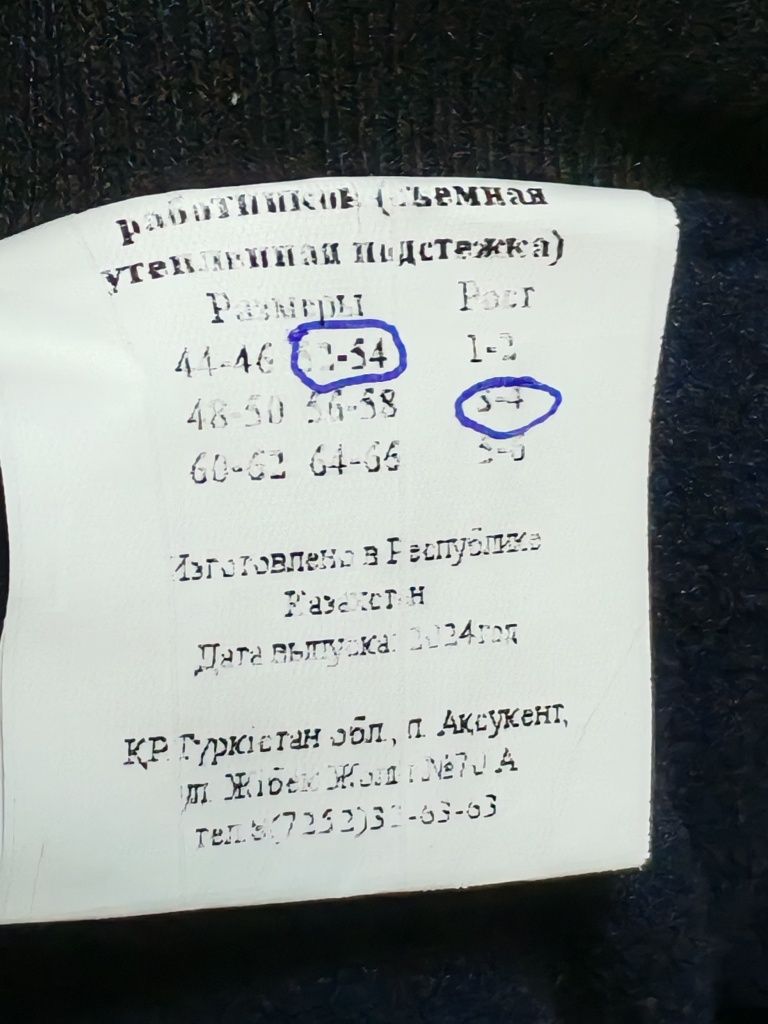 работников (съемная
утепленная подстежка)
Размеры Рост
44-46 52-54 1-2
48-50 56-58 3-4
60-62 64-66 5-6
Изготовлено в Республике
Казахстан
Дата выпуска: 2024год
ҚР Түркістан обл., п. Ақсукент,
ул. Жібек Жолы №70 А